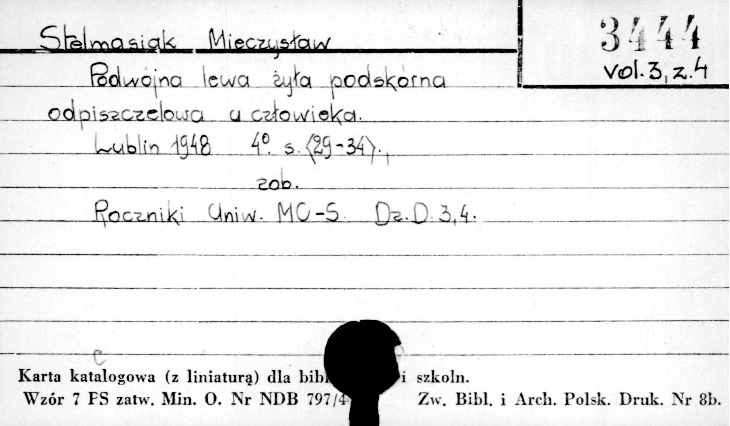 Stelmasiak Mieczysław
3444
vol. 3, z. 4
Podwójna lewa żyła podskórna
odpiszczelowa u człowieka.
Lublin 1948 4º. s. <29-34>.,
zob.
Roczniki Uniw. MC-S. Dz. D. 3,4.
Karta katalogowa (z liniaturą) dla i szkoln.
Wzór 7 FS zatw. Min. O. Nr NDB 797/4 Zw. Bibl. i Arch. Polsk. Druk. Nr 8b.